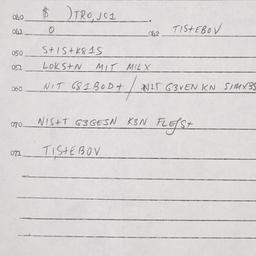 060 $ )TRO,JC1.
061 0 062 TIS+EBOV
050 S+IS+K81S
051 LOKS+N MIT MILX
060 NIT G81BOD+ / NIT G3VEN KN SIMX3S
070 NIS+T G3GESN K8N FLEJS+
071 TIS+EBOV